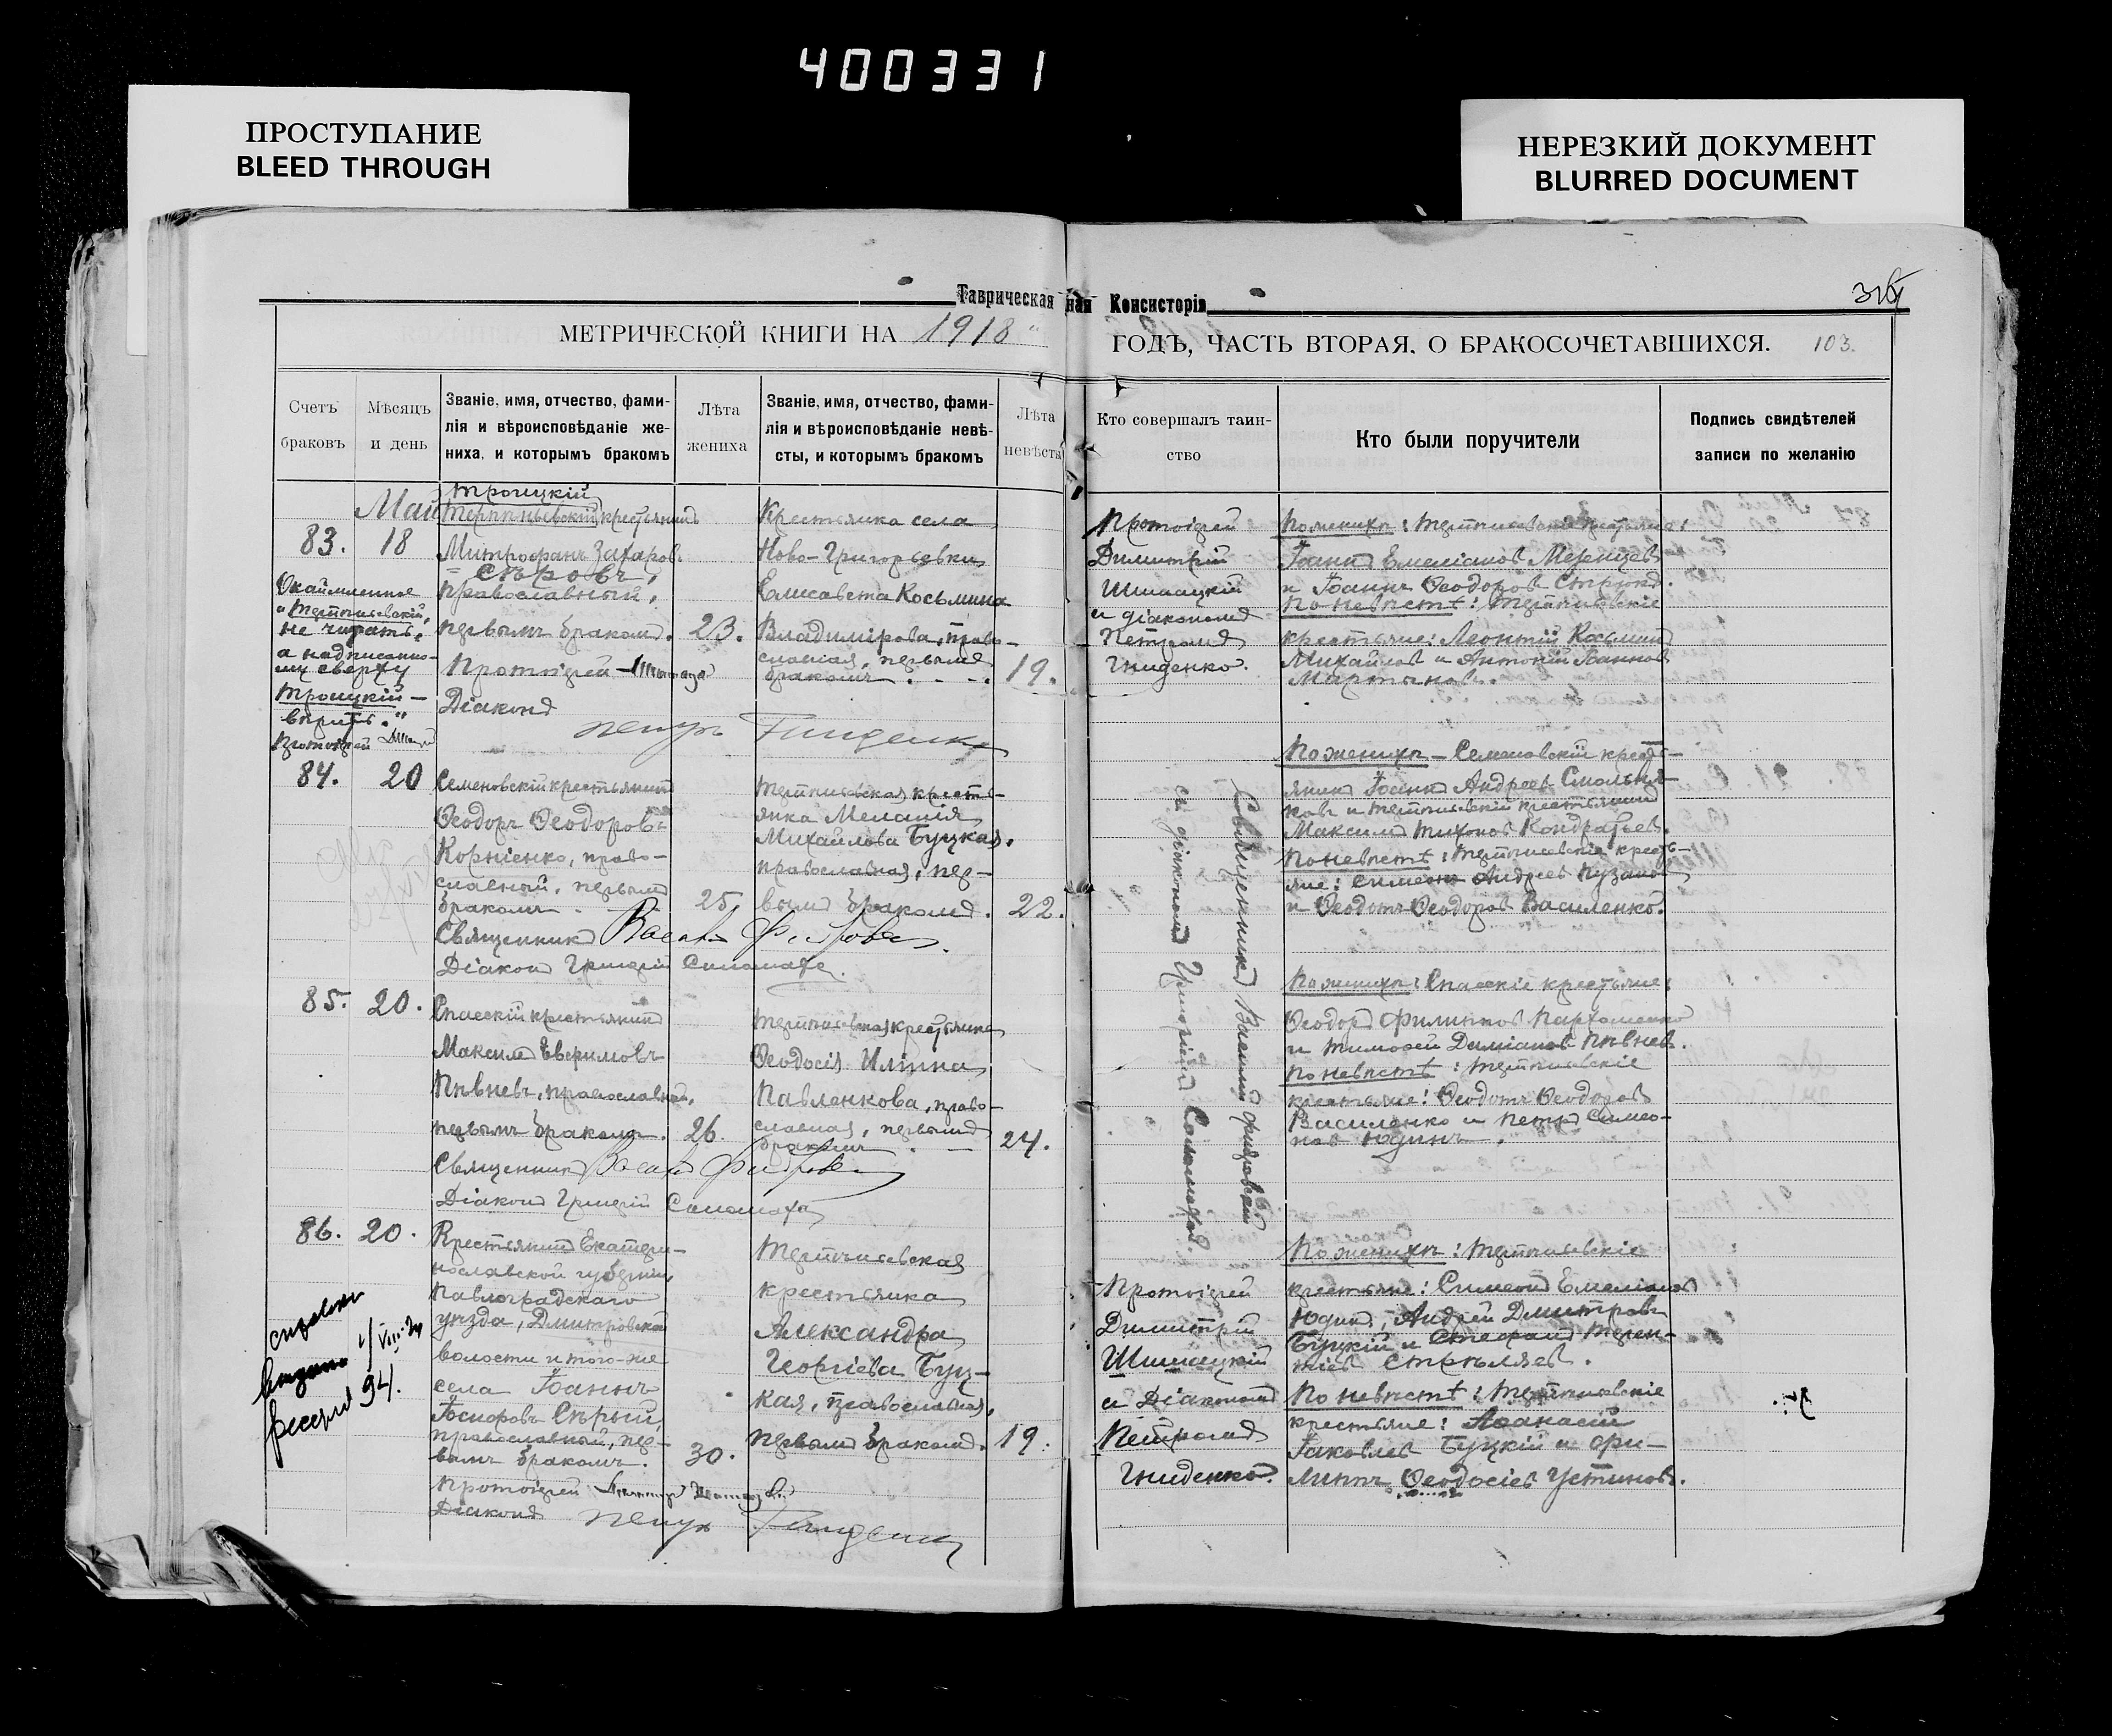 400331
ПРОСТУПАНИЕ
BLEED THROUGH
НЕРЕЗКИЙ ДОКУМЕНТ
BLURRED DOCUMENT
Таврическая ная Консисторія
МЕТРИЧЕСКОЙ КНИГИ НА 1918
ГОДЪ, ЧАСТЬ ВТОРАЯ, О БРАКОСОЧЕТАВШИХСЯ. 103.
Счетъ браковъ
Мѣсяцъ и день
Званіе, имя, отчество, фами-
лія и вѣроисповѣданіе же-
ниха, и которымъ бракомъ
Лѣта жениха
Званіе, имя, отчество, фами-
лія и вѣроисповѣданіе невѣ-
сты, и которымъ бракомъ
Лѣта невѣсты
Кто совершалъ таин-
ство
Кто были поручители
Подпись свидѣтелей
записи по желанію
Май
83. 18
Троицкій
Терпѣньевскій крестьянинъ
Митрофанъ Захаровъ
Сѣровъ,
православный,
первымъ бракомъ. 23.
Протоіерей
Діаконъ Петръ Гниденко
Окаймленное
"Терпѣньевскій"
не читать,
а надписанно-
му сверху
Троицкій –
вѣрить."
Протоіерей
Крестьянка села
Ново-Григорьевки
Елисавета Косьмина
Владимірова, право-
славная, первымъ
бракомъ. 19.
Протоіерей
Димитрій
Шишацкій
и діакономъ
Петромъ
Гниденко.
По женихѣ: Терпѣньевскіе крестьяне:
Іоаннъ Емеліановъ Мезенцевъ
и Іоаннъ Ѳеодоровъ
По невѣстѣ: Терпѣньевскіе
крестьяне: Леонтій Косьминъ
Михайловъ и Антоній Іоанновъ
Мартыновъ.
84. 20
Семеновскій крестьянинъ
Ѳеодоръ Ѳеодоровъ
Корніенко, право-
славный, первымъ
бракомъ. 25.
Священникъ
Діаконъ Григорій Саломаха.
Терпѣньевская кресть-
янка Меланія
Михайлова Буцкая,
православная, пер-
вымъ бракомъ. 22.
Священникъ Василій
съ діакономъ Григоріемъ Саломахой.
По женихѣ – Семеновскій кресть-
янинъ Іоаннъ Андреевъ Смольня-
ковъ и Терпѣньевскій крестьянинъ
Максимъ Тихоновъ Кондратьевъ.
По невѣстѣ: Терпѣньевскіе кресть-
яне: Симеонъ Андреевъ Пузановъ
и Ѳеодотъ Ѳеодоровъ Василенко.
85. 20.
Спасскій крестьянинъ
Максимъ Евфимовъ
Пѣвневъ, православный,
первымъ бракомъ. 26.
Священникъ
Діаконъ Григорій Саломаха
Терпѣньевская крестьянка
Ѳеодосія Иліина
Павленкова, право-
славная, первымъ
бракомъ. 24.
По женихѣ: Спасскіе крестьяне:
Ѳеодоръ Филипповъ Пархоменко
и Тимоѳей Даміановъ Пѣвневъ.
По невѣстѣ: Терпѣньевскіе
крестьяне: Ѳеодотъ Ѳеодоровъ
Василенко и Петръ Симео-
новъ Юдинъ.
86. 20.
Крестьянинъ Екатери-
нославской губерніи,
Павлоградскаго
уѣзда, Дмитровской
волости и того-же
села Іоаннъ
Іосифовъ Сѣрый,
православный, пер-
вымъ бракомъ. 30.
Протоіерей
Діаконъ Петръ Гниденко
справка
выдана
94.
Терпѣньевская
крестьянка
Александра
Георгіева Буц-
кая, православная,
первымъ бракомъ. 19.
Протоіерей
Димитрій
Шишацкій
и Діакономъ
Петромъ
Гниденко.
По женихѣ: Терпѣньевскіе
крестьяне: Симеонъ Емеліановъ
Юдинъ, Андрей Дмитровъ
Буцкій и Стефанъ Терен-
тіевъ Стрѣляевъ.
По невѣстѣ: Терпѣньевскіе
крестьяне: Аѳанасій
Іаковлевъ Буцкій и Фи-
липпъ Ѳеодосіевъ Устиновъ.